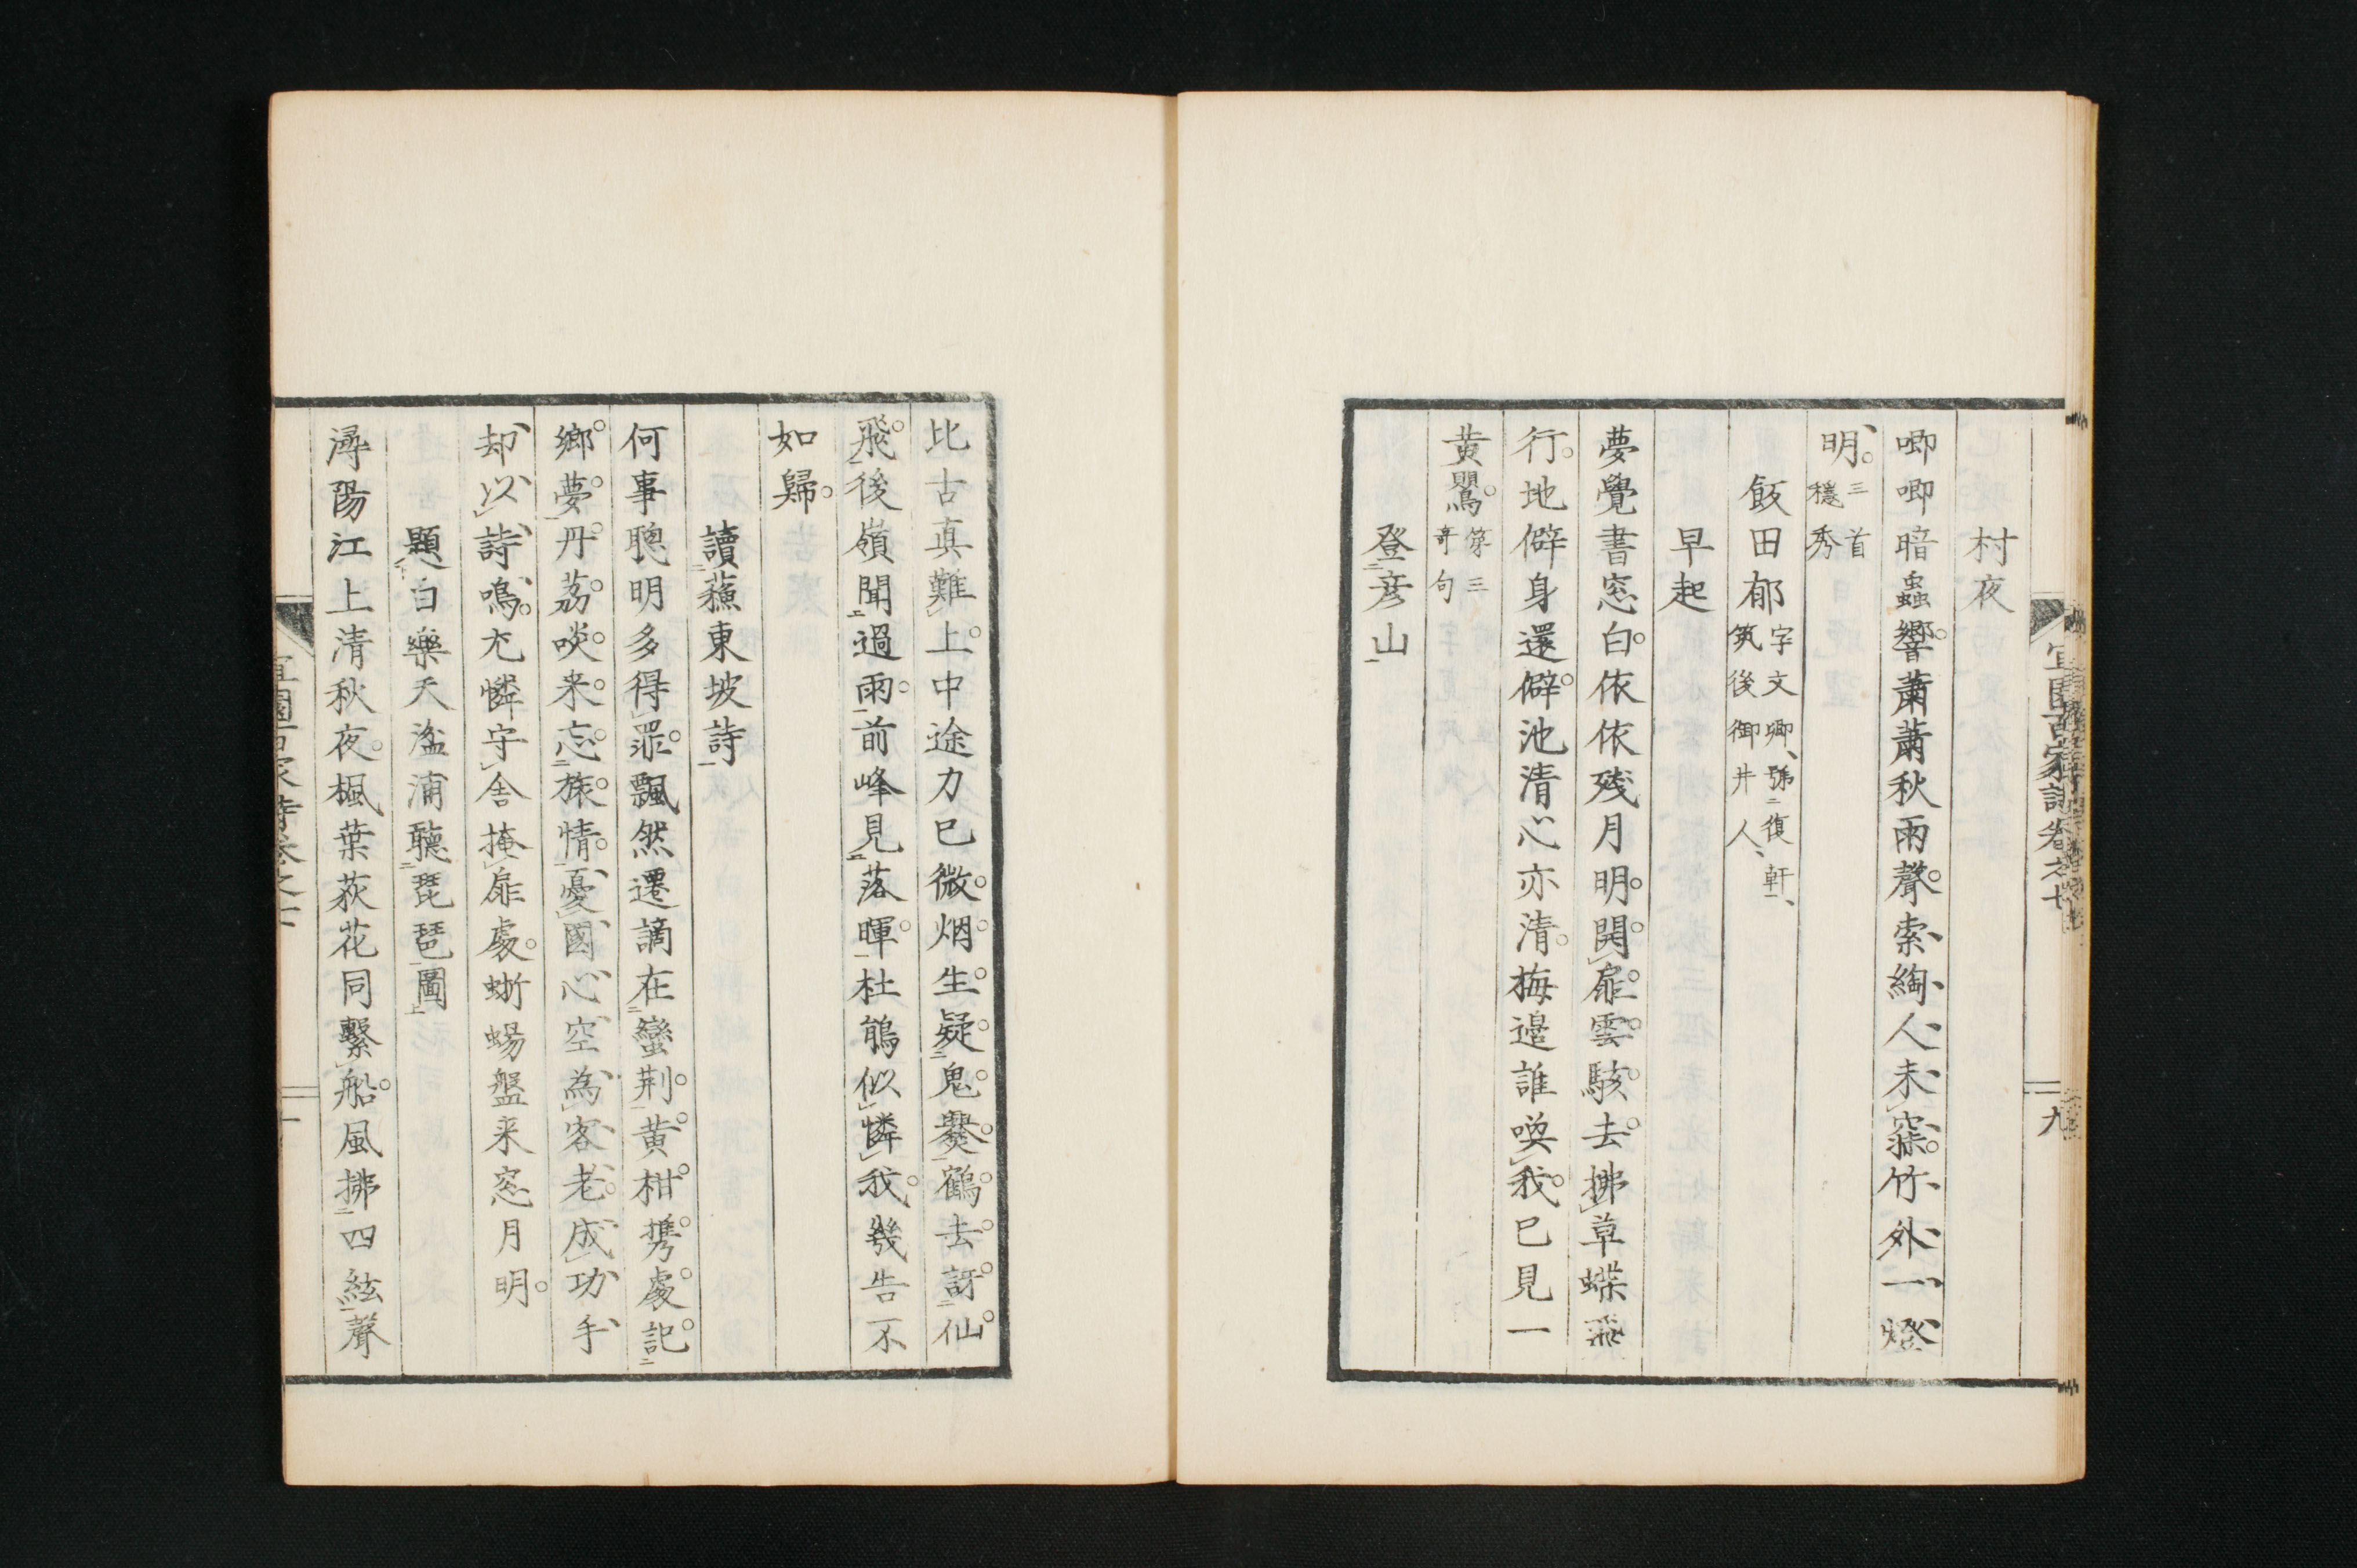 村夜
唧唧暗蟲響。蕭蕭秋雨聲。索綯人未寐。竹外一燈
明。三首穩秀
飯田郁字文卿、號復軒、筑後御井人、
早起
夢覺書窓白。依依殘月明。開扉雲駭去。拂草蝶飛
行。地僻身還僻。池清心亦清。梅邊誰喚我。已見一
黄鸎。第三奇句
登彦山
比古真難上。中途力已微。烟生疑鬼爨。鶴去訝仙
飛。後嶺聞過雨。前峰見落暉。杜鵑似憐我。幾告不
如歸。
讀蘓東坡詩
何事聰明多得罪。飄然遷謫在蠻荆。黄柑携處記
鄉夢。丹荔啖来忘旅情。憂國心空為客老。成功手
却以詩鳴。尤憐守舍掩扉處。蜥蜴盤来窓月明。
題白樂天湓浦聽琵琶圖
潯陽江上清秋夜。楓葉荻花同繫船。風拂四絃聲
宜園百家詩卷之七
九